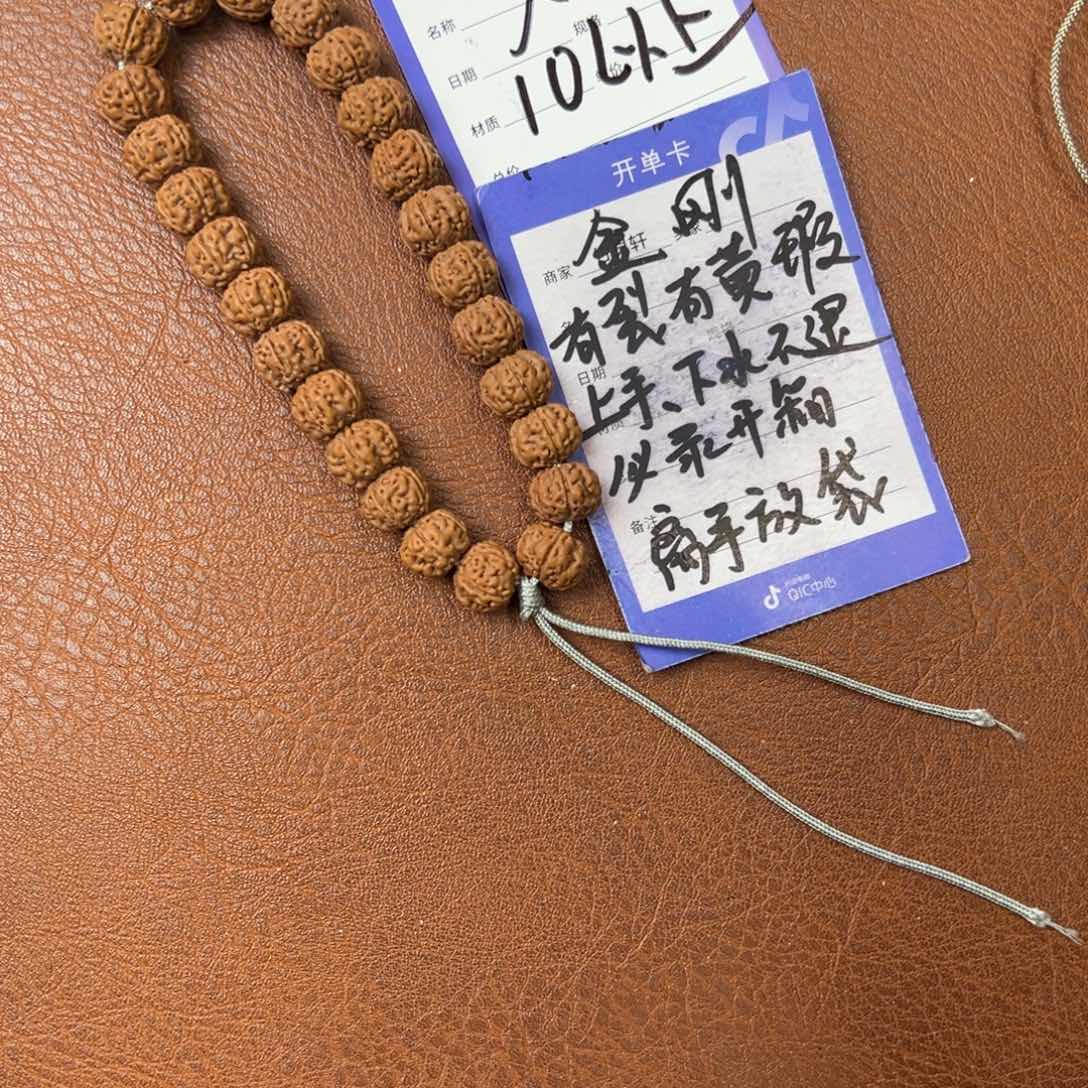 名称 规格
日期
10以上
材质
开单卡
金刚
商家 轩
有裂有黄瑕
日期
上手、下水不退
必录开箱
备注
离手放袋
QIC中心